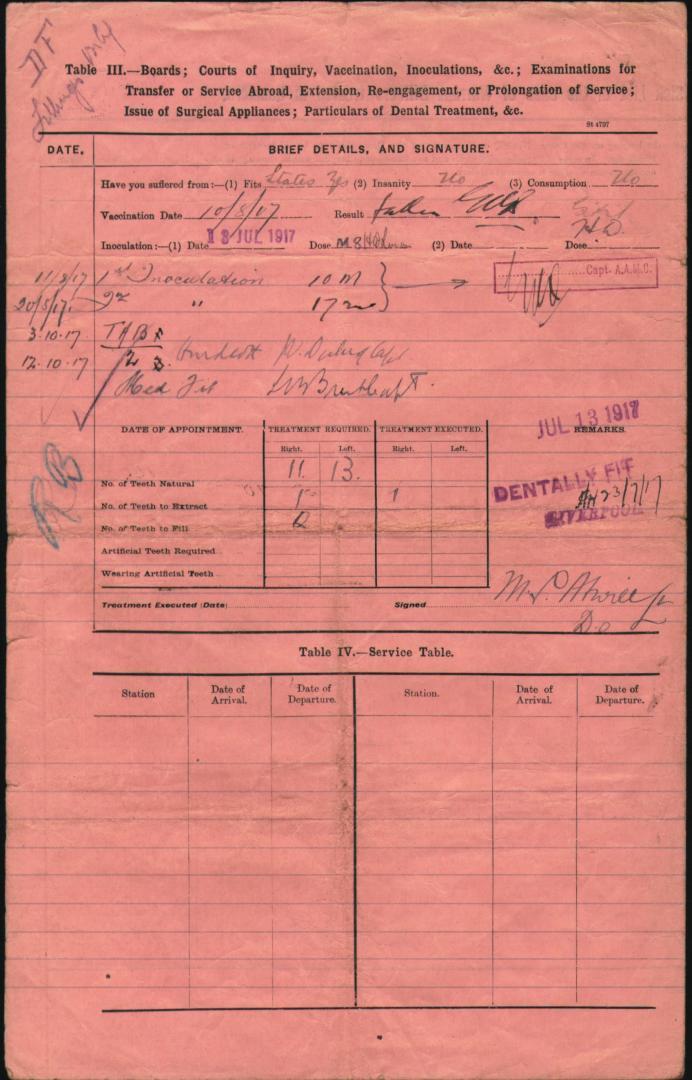 DF
Fillings only
Table III.—Boards; Courts of Inquiry, Vaccination, Inoculations, &c.; Examinations for
Transfer or Service Abroad, Extension, Re-engagement, or Prolongation of Service;
Issue of Surgical Appliances; Particulars of Dental Treatment, &c.
St 4797
DATE. BRIEF DETAILS, AND SIGNATURE.
Have you suffered from:—(1) Fits States Yes (2) Insanity No (3) Consumption No
Vaccination Date 10/8/07 Result
Inoculation:—(1) Date 13 JUL 1917 Dose (2) Date Dose
11/8/17 1st Inoculation 10 M
Capt. A.A.M.C.
20/8/17 2 " 17
3.10.17 TAB
12.10.17 2
Med Fit
RB
JUL 13 1917
DATE OF APPOINTMENT. TREATMENT REQUIRED. TREATMENT EXECUTED. REMARKS.
Right. Left. Right. Left.
No. of Teeth Natural 11 13.
DENTALLY FIT
No. of Teeth to Extract 1 1
23/7/17
LIVERPOOL
No. of Teeth to Fill 2
Artificial Teeth Required
Wearing Artificial Teeth
Treatment Executed (Date) Signed
Table IV.—Service Table.
Station Date of Arrival. Date of Departure. Station. Date of Arrival. Date of Departure.